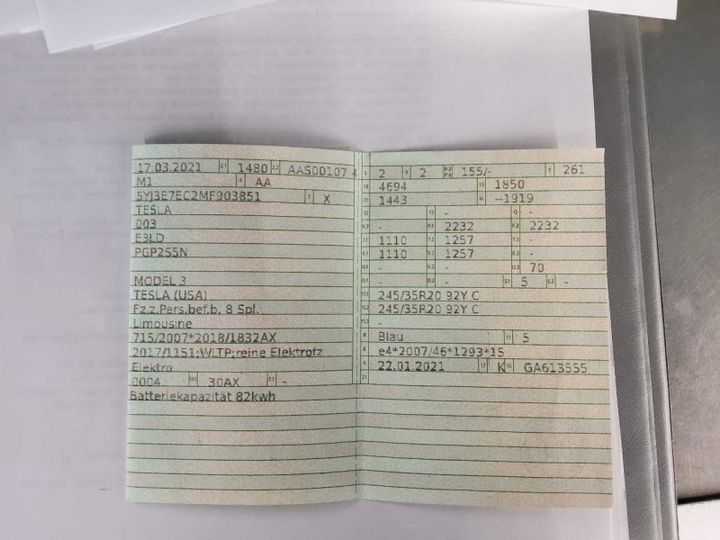 17.03.2021 2.1 1480 2.2 AAS00107 4
M1 4 AA
5YJ3E7EC2MF903851 3 X
TESLA
003
E3LD
PGP2S5N
MODEL 3
TESLA (USA)
Fz.z.Pers.bef.b. 8 Spl.
Limousine
715/2007*2018/1832AX
2017/1151;WLTP;reine Elektrofz
Elektro
0004 30AX -
Batteriekapazität 82kwh
2 9 2 P.2 P.4 155/- T 261
18 4694 19 1850
20 1443 G —1919
- - -
- 2232 2232
1110 1257 -
1110 1257 -
- - 70
- - S.1 5 S.2 -
245/35R20 92Y C
245/35R20 92Y C
-
R Blau 11 5
K e4*2007/46*1293*15
6 22.01.2021 17 K 16 GA613555
21